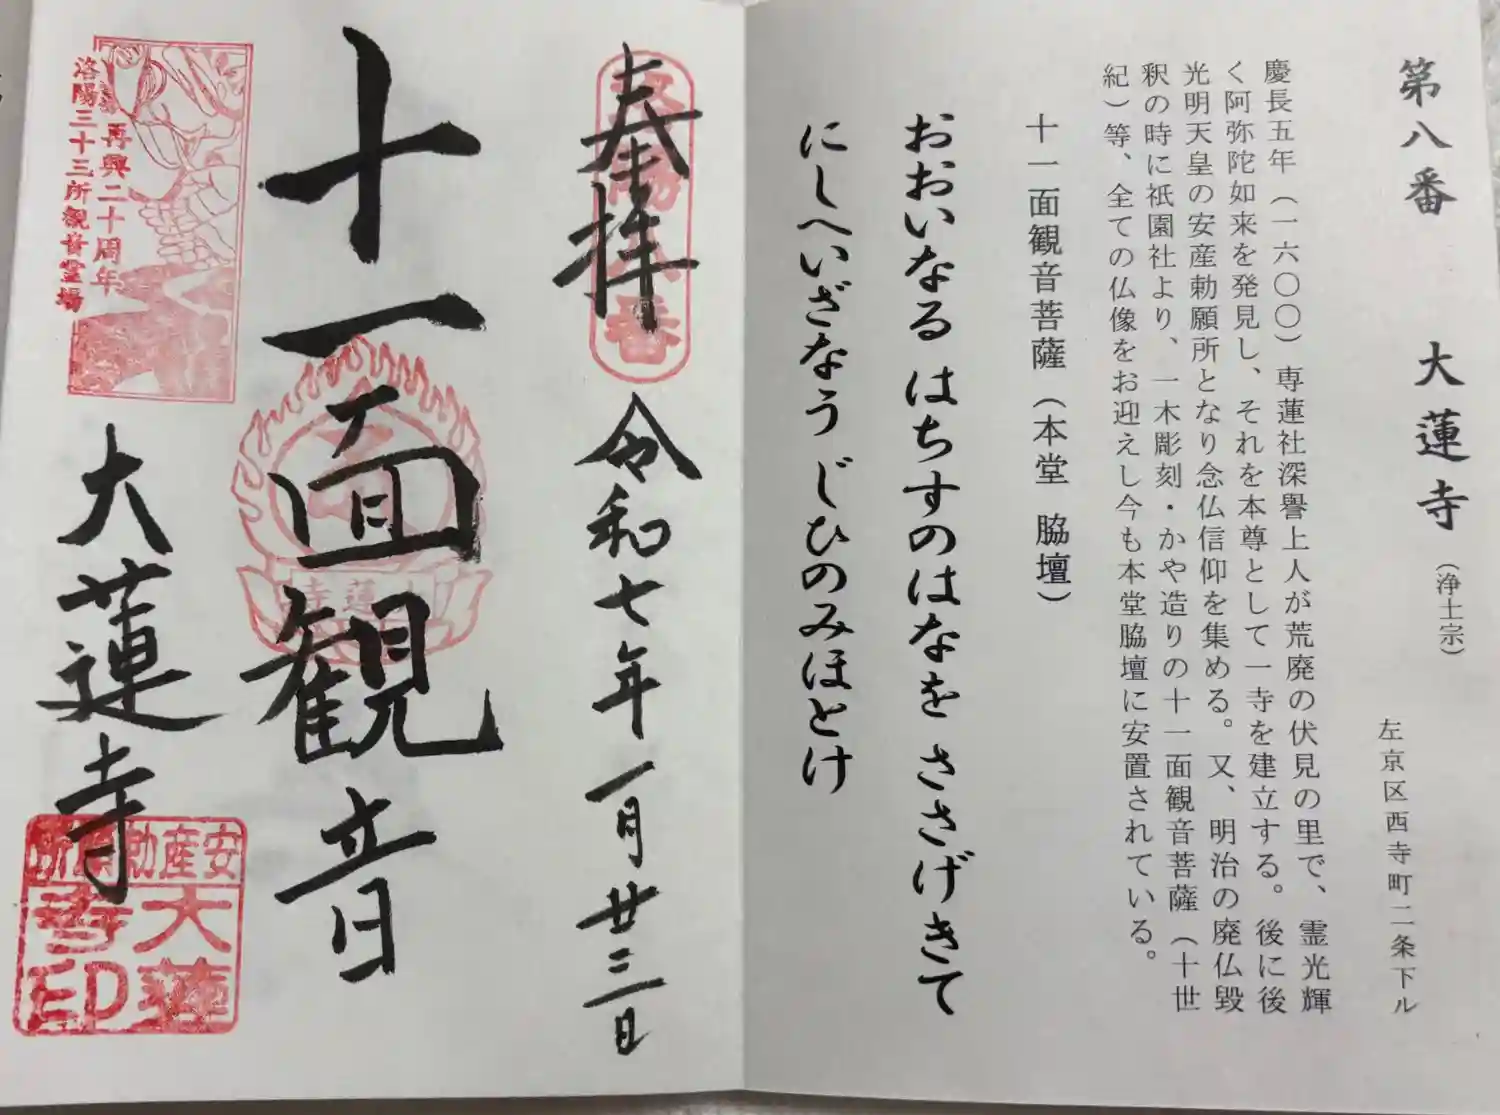 第八番 大蓮寺（浄土宗）
左京区西寺町二条下ル
慶長五年（一六〇〇）専蓮社深譽上人が荒廃の伏見の里で、霊光輝
く阿弥陀如来を発見し、それを本尊として一寺を建立する。後に後
光明天皇の安産勅願所となり念仏信仰を集める。又、明治の廃仏毀
釈の時に祇園社より、一木彫刻・かや造りの十一面観音菩薩（十世
紀）等、全ての仏像をお迎えし今も本堂脇壇に安置されている。
十一面観音菩薩（本堂 脇壇）
おおいなる はちすのはなを ささげきて
にしへいざなう じひのみほとけ
奉拝
洛陽八番
令和七年一月廿三日
十一面観音
大蓮寺
大蓮寺
再興二十周年
洛陽三十三所観音霊場
安産勅願所
大蓮
寺印